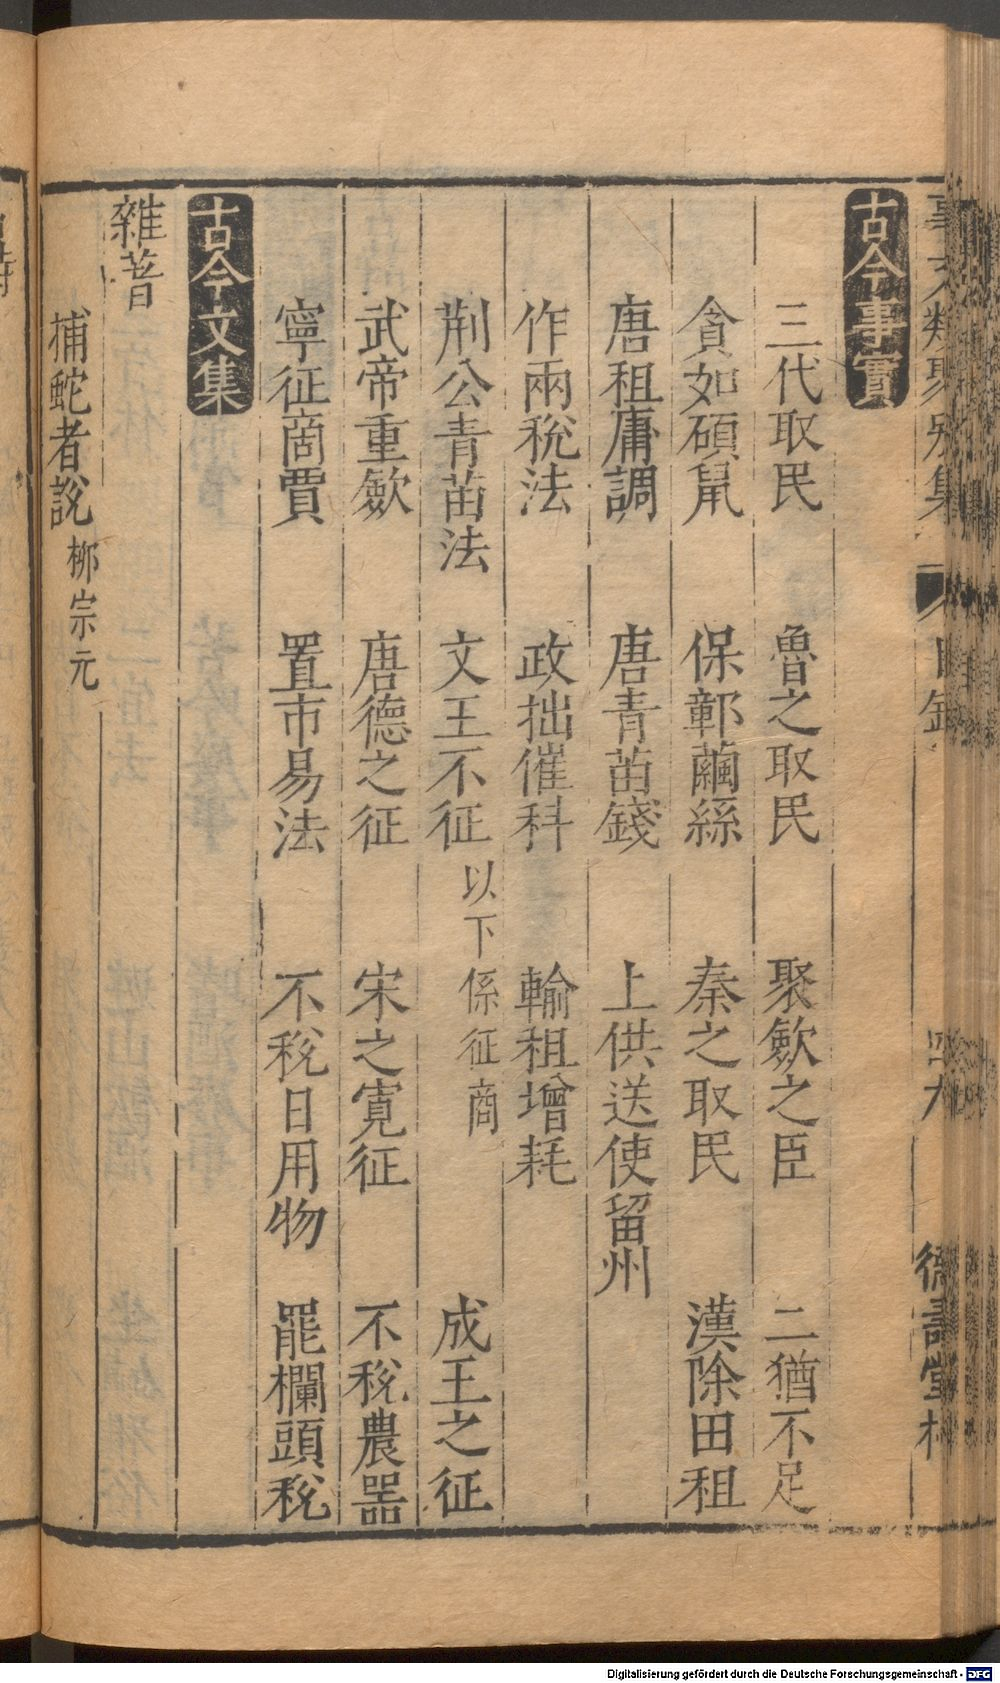 事文類聚別集
目錄
四九
德壽堂梓
古今事實
三代取民 魯之取民 聚斂之臣 二猶不足
貪如碩鼠 保鄣繭絲 秦之取民 漢除田租
唐租庸調 唐青苗錢 上供送使留州
作兩稅法 政拙催科 輸租增耗
荆公青苗法 文王不征 以下係征商 成王之征
武帝重斂 唐德之征 宋之寬征 不稅農器
寧征商賈 置市易法 不稅日用物 罷欄頭稅
古今文集
雜著
捕蛇者說 柳宗元
Digitalisierung gefördert durch die Deutsche Forschungsgemeinschaft - DFG